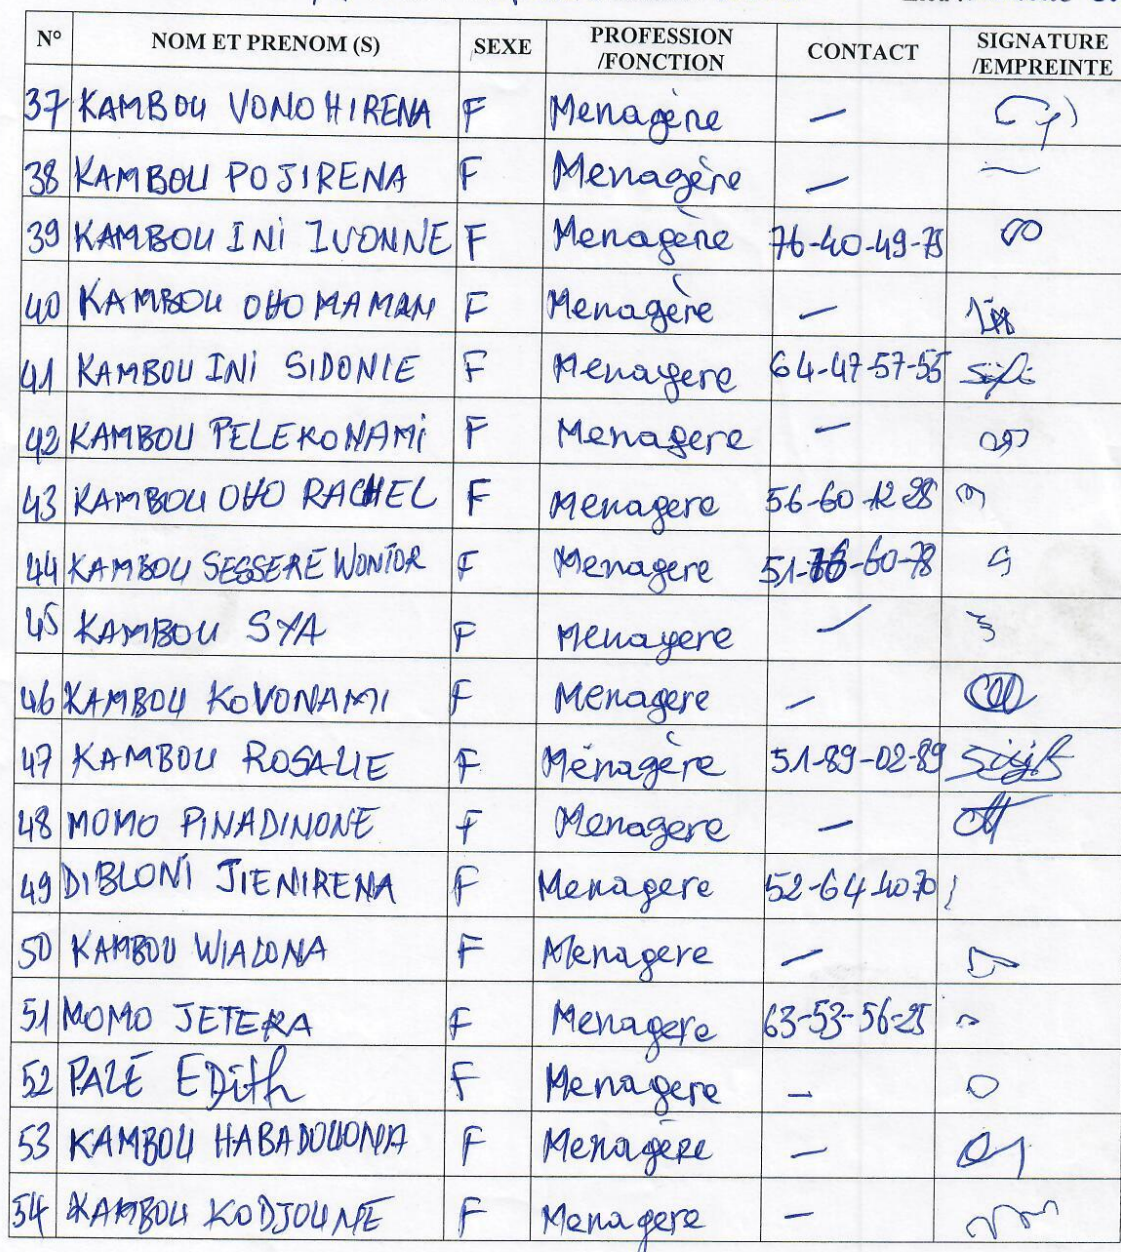 N° NOM ET PRENOM (S) SEXE PROFESSION /FONCTION CONTACT SIGNATURE /EMPREINTE
37 KAMBOU VONOHIRENA F Menagère —
38 KAMBOU POJIRENA F Menagère —
39 KAMBOU INI IVONNE F Menagère 76-40-49-75
40 KAMBOU OHO MAMAN F Menagère —
41 KAMBOU INI SIDONIE F Menagere 64-47-57-55
42 KAMBOU PELEKONAMI F Menagere —
43 KAMBOU OHO RACHEL F Menagere 56-60-12 28
44 KAMBOU SESSERE WONTOR F Menagere 51-76-60-78
45 KAMBOU SYA F Menagere —
46 KAMBOU KOVONAMI F Menagere —
47 KAMBOU ROSALIE F Ménagère 51-89-02-89
48 MOMO PINADINONE F Menagere —
49 DIBLONI JIENIRENA F Menagere 52-64 40 70
50 KAMBOU WIALONA F Menagere —
51 MOMO JETERA F Menagere 63-53-56-25
52 PALÉ EDith F Menagere —
53 KAMBOU HABADOUONA F Menagère —
54 KAMBOU KODJOUNE F Menagere —